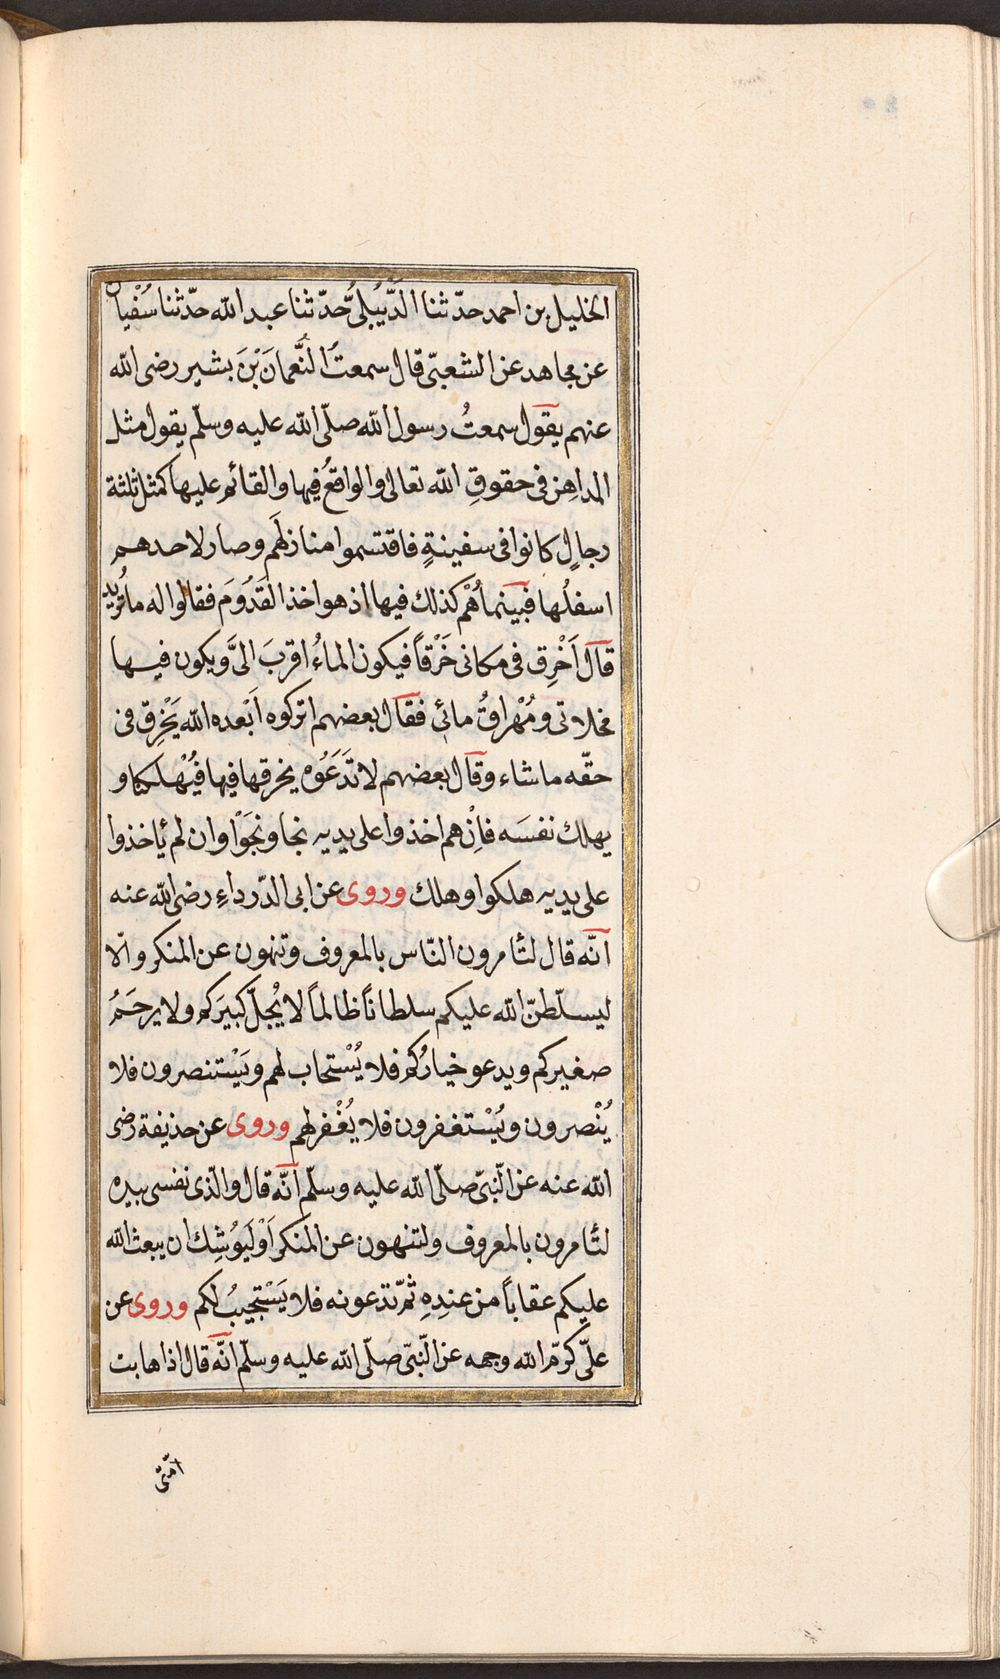 الخليل بن احمد حدّثنا الدَّيْبُلىُّ حدّثنا عبد الله حدّثنا سُفْيان
عن مجاهد عن الشعبىّ قال سمعتُ النُّعمانَ بْنَ بشير رضى الله
عنهم يقول سمعتُ رسول الله صلّى الله عليه وسلّم يقول مثل
المداهن فى حقوقِ الله تعالى والواقعُ فيها والقائم عليها كمثل ثلثة
رجالٍ كانوا فى سفينةٍ فاقتسموا منازلَهم وصار لاحدهم
اسفلُها فبَينما هُمْ كذلك فيها اذ هو اخذ القَدُومَ فقالوا له ما تُريد
قال اَخْرِق فى مكانى خَرْقاً فيكون الماءُ اقربَ الىَّ ويكون فيها
مخلاتى ومُهْراقُ مائى فقال بعضهم اتركوه اَبْعده الله يَخْرِق فى
حقّه ما شاء وقال بعضهم لا تَدَعُوْه يخرقها فيها فيُهْلكنا و
يهلك نفسَه فاِنْ هم اخذوا على يديه نجا ونجَوْا وان لم يأخذوا
على يديه هلكوا وهلك وروى عن ابى الدّرداءِ رضى الله عنه
انّه قال لتأمرون النّاس بالمعروف وتنهون عن المنكر والّا
ليسلّطنّ الله عليكم سلطاناً ظالماً لا يُجلّ كبيرَكم ولا يرحَمُ
صغيركم ويدعو خيارُكم فلا يُسْتجاب لهم ويَسْتنصرون فلا
يُنْصرون ويَسْتغفرون فلا يُغْفر لهم وروى عن حذيفة رضى
الله عنه عن النّبىّ صلّى الله عليه وسلّم انّه قال والّذى نفسى بيده
لتأمرون بالمعروف ولتنهون عن المنكر اَوْ ليَوُشِك ان يبعث الله
عليكم عقاباً من عندِهِ ثمّ تدعونه فلا يَسْتجيبُ لكم وروى عن
علىّ كرّم الله وجهه عن النّبىّ صلّى الله عليه وسلّم انّه قال اذا هابت
امّتى